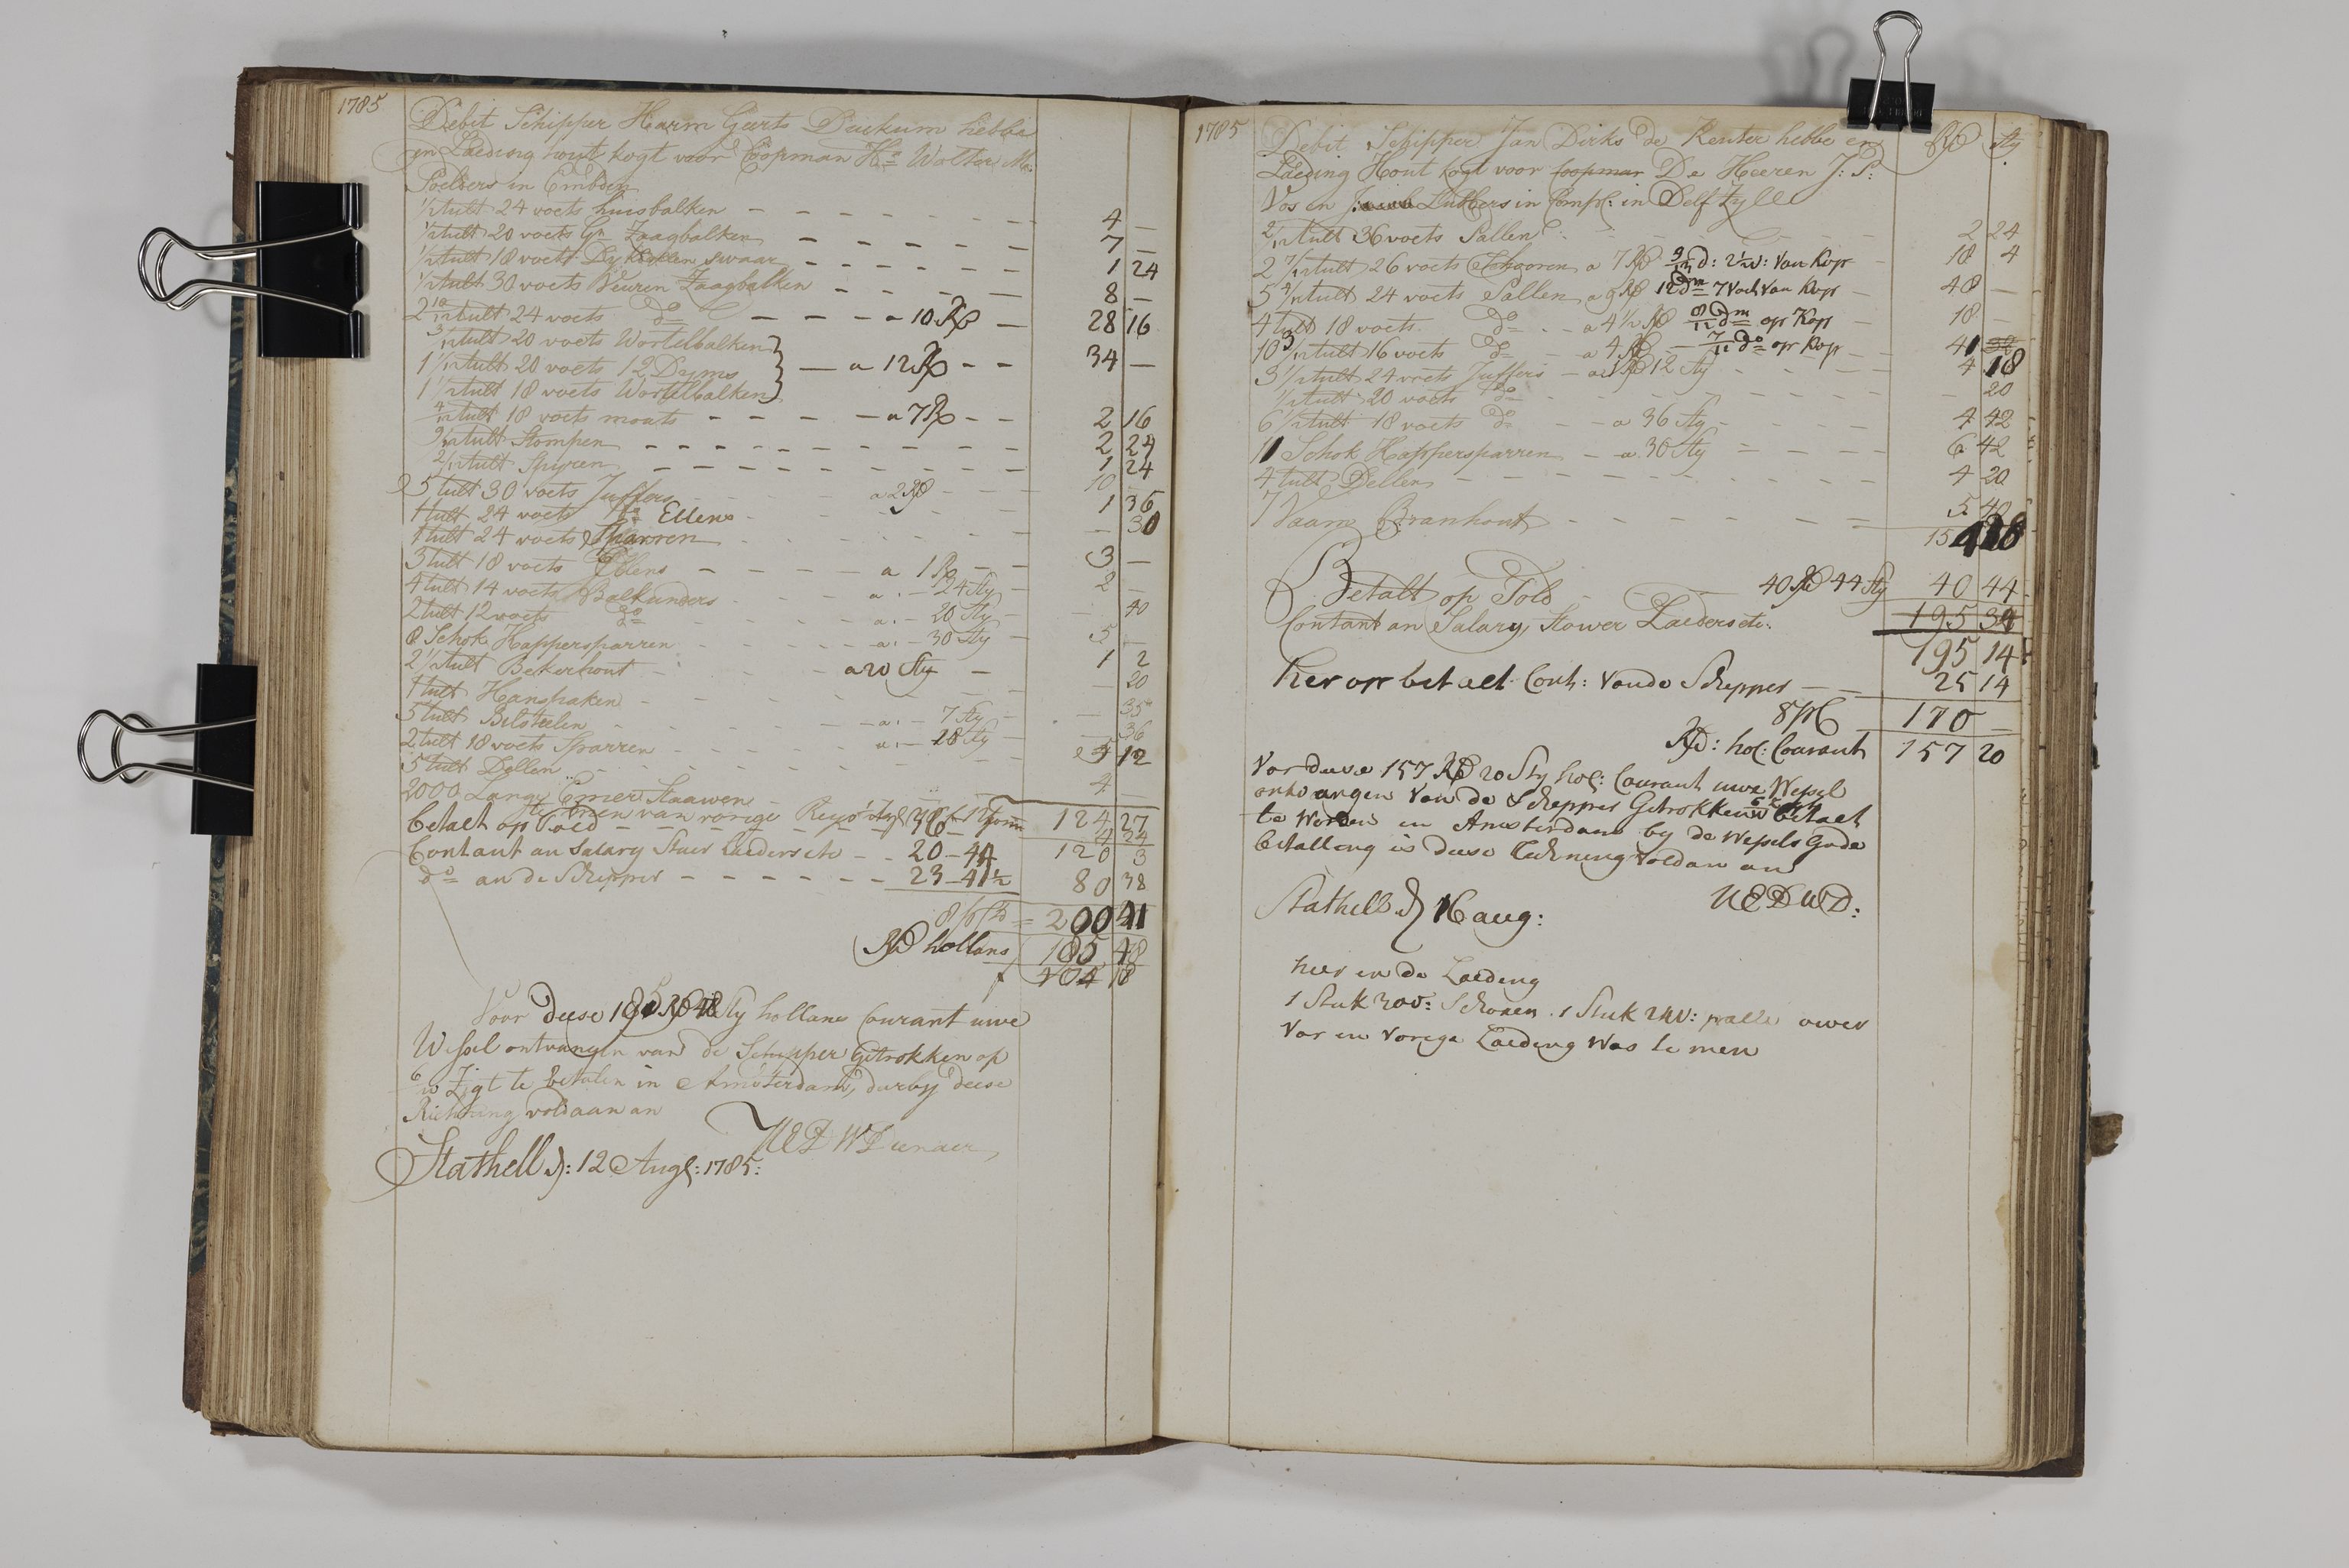 1785
Debit Schipper Harm Geerts Duckum hebbe
en Laeding hout kogt voor Coopman Hn Wolter Mr
Poelders in Embden
1/12 tult 24 voets huisbalken - - - 4 —
1/12 tult 20 voets Gn Zaagbalken - - - 7 —
1/12 tult 18 voets swaar - - - 1 24
1/12 tult 30 voets Veuren Zaagbalken - - - 8 —
2 10/12 tult 24 voets do - - - a 10 Rd — 28 16
3/12 tult 20 voets Wortelbalken
1 1/12 tult 20 voets 12 Dyms — a 12 Rd - - 34 —
1 1/12 tult 18 voets Wortelbalken
4/12 tult 18 voets mants - - - a 7 Rd - - 2 16
9/12 tult Stompen - - - 2 24
2/12 tult Spyren - - - 1 24
5 tult 30 voets Juffers - - - a 2 Rd - - 10 —
1 tult 24 voets Ellens - - - 1 36
1 tult 24 voets Sparren - - - — 30
3 tult 18 voets Ellens - - - a 1 Rd - - 3 —
4 tult 14 voets Balkunders - - - a: - 24 Sty - 2 —
2 tult 12 voets do - - - a: - 20 Sty - — 40
8 Schok Kappersparren - - - a: - 30 Sty - 5 —
2 1/2 tult Bekerhout - - - a 20 Sty - 1 2
1 tult Hanspaken - - - — 20
5 tult Bilsteelen - - - a: - 7 Sty - — 35
2 tult 18 voets Sparren - - - a: - 18 Sty - — 36
5 tult Dellen - - - 12
2000 Lange Emer Staawen - - - 4 —
van vorige 124 27
betaelt op Told - - - 36 - 4 24
Contant an Salary Stuer Laeders etc - - 20 - 44 120 3
do an de Schepper - - - 23 - 41 1/2 80 38
8 pCt = 200 41
Rd hollans 185 48
f 464 18
Voor deese 185 Rd 48 Sty hollans Courant uwe
Wessel ontvangen van de Schipper Getrokken op
6 w Zigt te betalen in Amsterdam, darby deese
Richning voldaan an
UED WDienaer
Stathell d: 12 Augs: 1785:
1785
Debit Schipper Jan Dirks de Reuter hebbe en Rd Sty
Laeding Hout kogt voor Coopman De Heeren J: P:
Vos en J Lubbers in Comps: in Delfzyll
2/12 tult 36 voets Pallen - - - 2 24
2 7/12 tult 26 voets Schooren a 7 Rd 9/12 d: 2 1/2 v: Van Kop - 18 4
5 4/12 tult 24 voets Pallen a 9 Rd 12 dm 7 Voet Van Kop - 48 —
4 tult 18 voets do - - a 4 1/2 Rd 8/12 dm op Kop - 18 —
10 3/12 tult 16 voets do - a 4 Rd - 7/12 do op Kop - - 41
3 1/12 tult 24 voets Juffers - a 1 Rd 12 Sty - - - 4 18
1/12 tult 20 voets do - - - — 20
6 1/2 tult 18 voets do - a 36 Sty - - - 4 42
11 Schok Kappersparren - a 30 Sty - - - 6 42
4 tult Dellen - - - 4 20
7 Vaam Branhout - - - 5 40
Betalt op Told - - - 40 Rd 44 Sty 40 44
Contant an Salary, Stower Laeders etc: 195 34
195 14
hier op betaelt Cont: Van de Schepper — — 25 14
8 pCt 170 —
Rd: hol: Courant 157 20
Vor deese 157 Rd 20 Sty hol: Courant uwe Wessel
ontvangen Van de Schepper Getrokken betaelt
te Worden in Amsterdam by de Wessels Gode
betalling is deese Rickning Voldan an
UEDWD:
Stathell d 16 aug:
hier en de Laeding
1 Stuk 30 v: Schoren . 1 Stuk 24 v: palle ower
Vor en Vorega Laeding Was te men